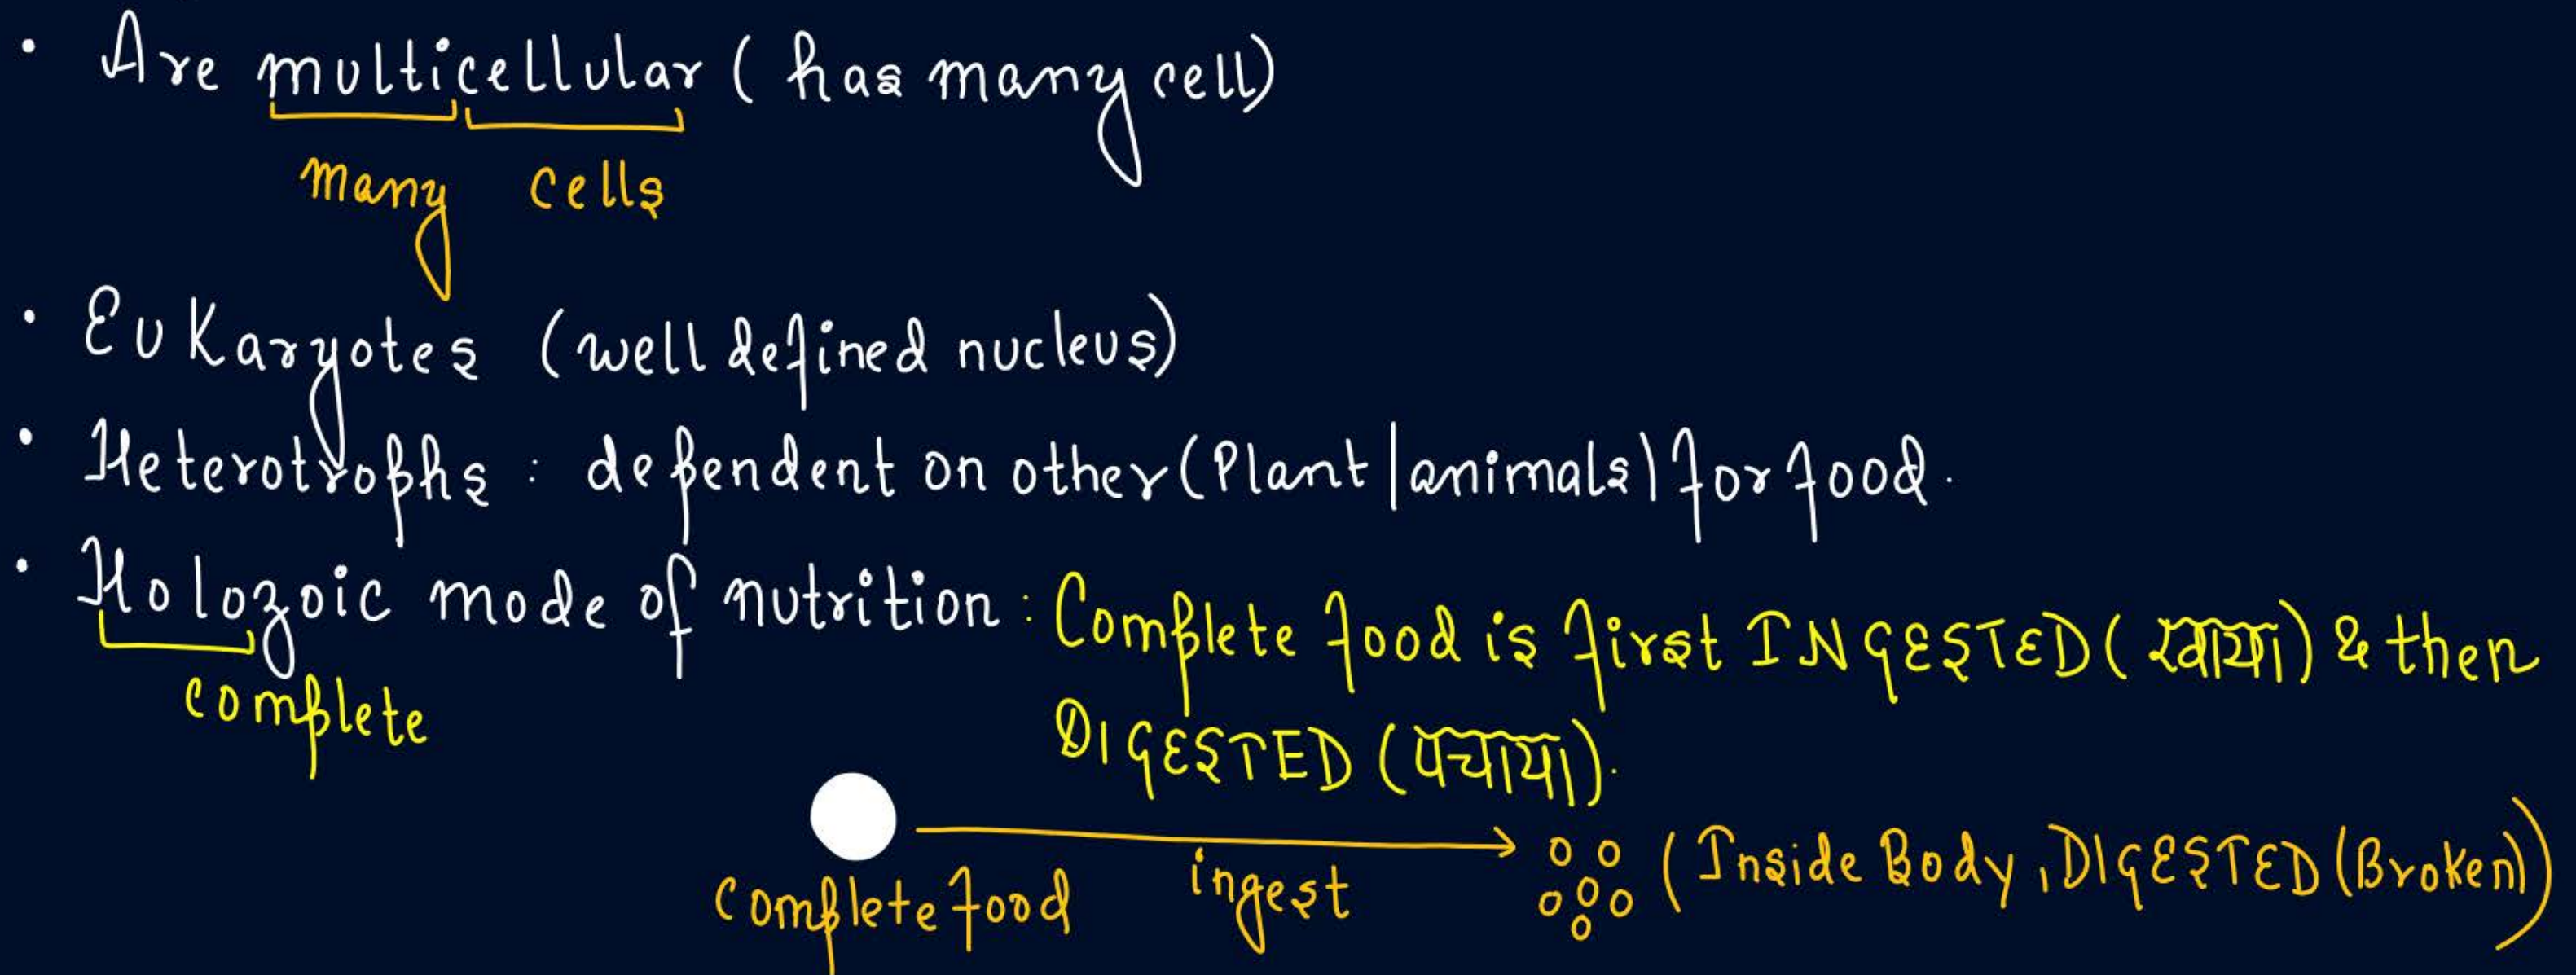 • Are multicellular ( has many cell)
many cells
• Eukaryotes (well defined nucleus)
• Heterotrophs : dependent on other (Plant|animals) for food.
• Holozoic mode of nutrition : Complete food is first INGESTED ( खाया) & then
complete
DIGESTED (पचाया).
complete food ingest (Inside Body, DIGESTED (Broken))